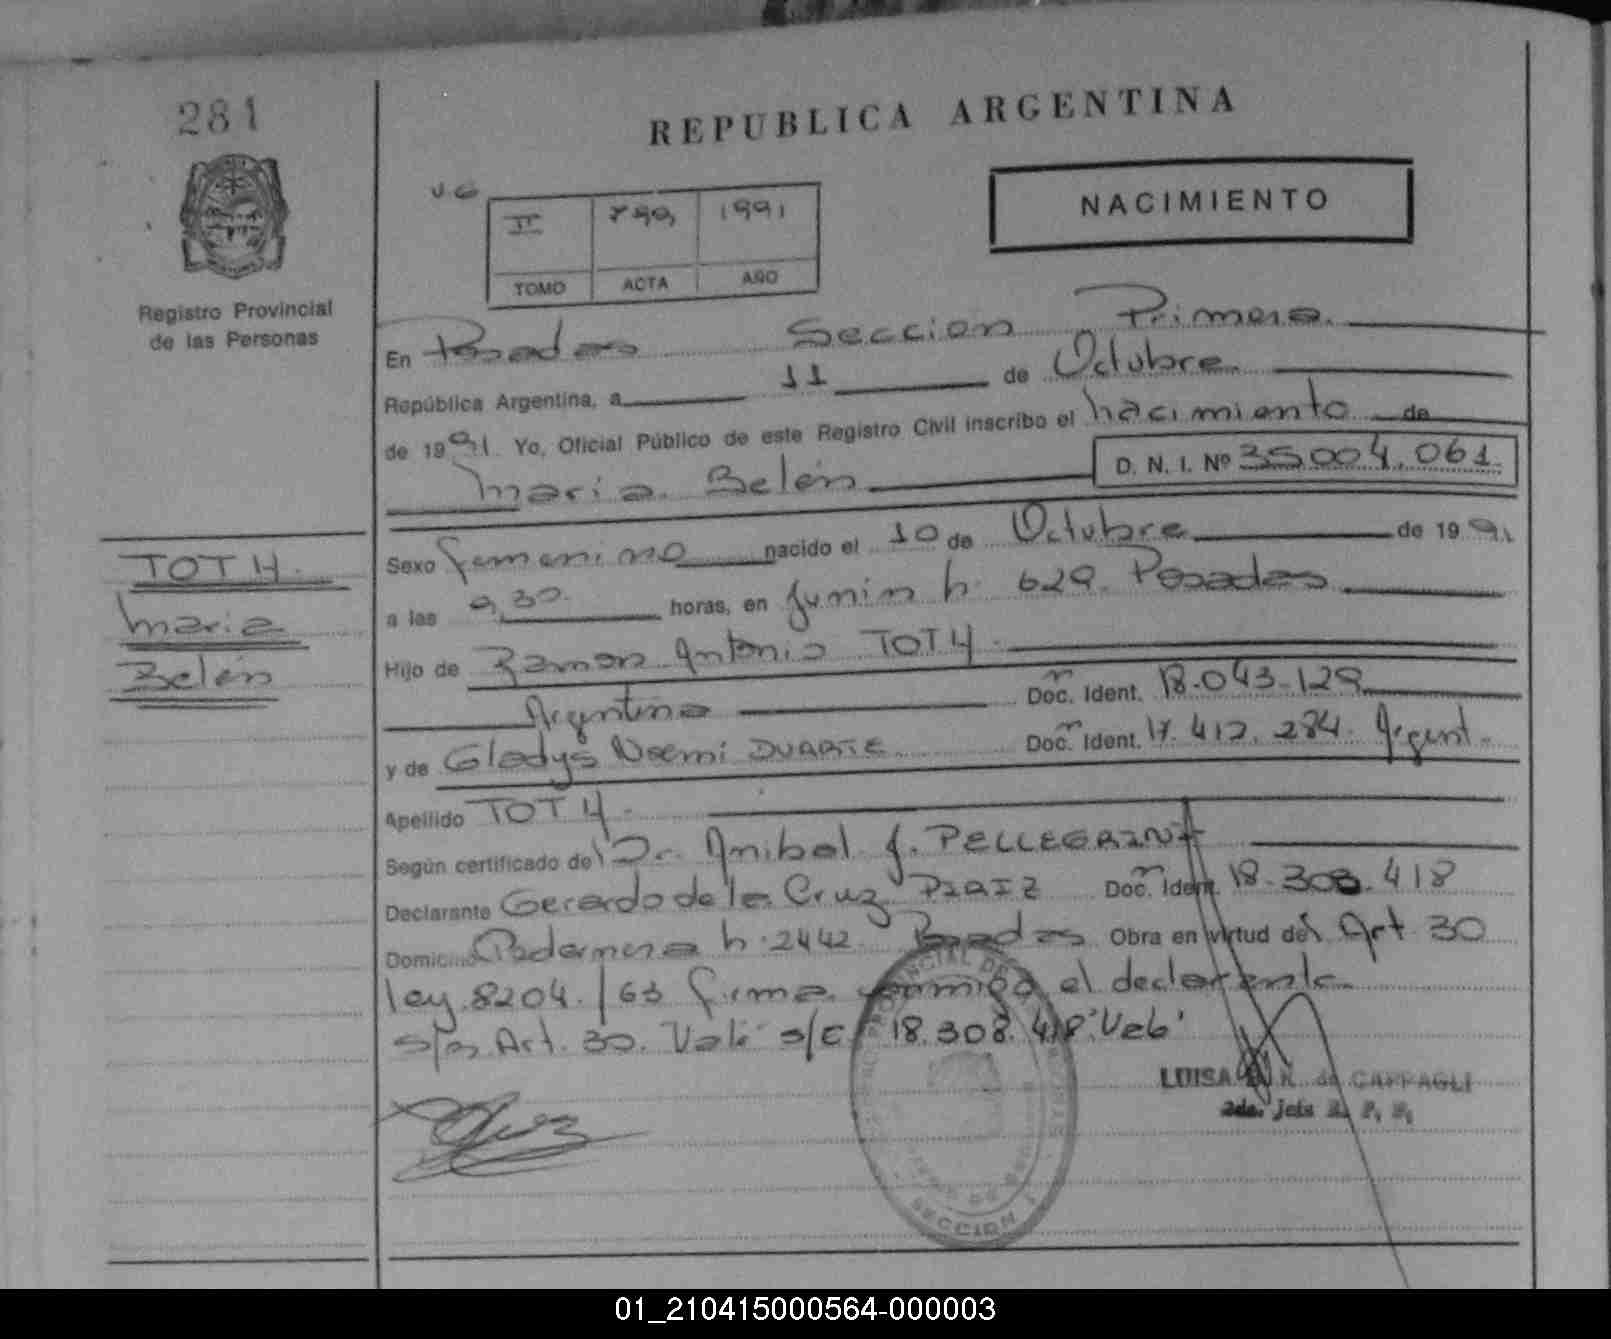 281
REPUBLICA ARGENTINA
NACIMIENTO
II 799 1991
TOMO ACTA AÑO
Registro Provincial
de las Personas
En Posadas Seccion Primera
República Argentina, a 11 de Octubre
de 1991 Yo, Oficial Público de este Registro Civil inscribo el nacimiento de
Maria Belén D. N. I. Nº 35.004.061
TOTH.
Maria
Belén
Sexo femenino nacido el 10 de Octubre de 1991
a las 9,30 horas, en Junin h. 629. Posadas
Hijo de Ramon Antonio TOTH
Argentino Doc. Ident. 18.043.129
y de Gladys Noemi DUARTE Doc. Ident. 17.412.284. Argent.
Apellido TOTH.
Según certificado del Dr. Anibal J. PELLEGRINI
Declarante Gerardo de la Cruz PIRIZ Doc. Ident. 18.308.418
Domicilio Pedernera h. 2442 Posadas Obra en virtud del Art 30
ley 8204/63 firma conmigo el declarante
Art. 30. Vale s/E 18.308.418 "Vale"
LUISA N. de CAPPAGLI
2da. Jefe R. P. P.
SECCION 1
01_210415000564-000003